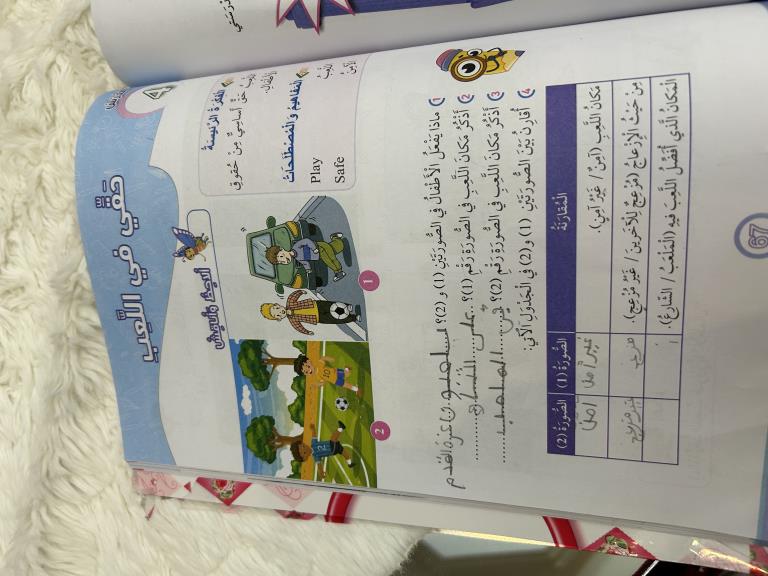 4
حَقِّي فِي اللَّعِبِ
الْفِكْرَةُ الرَّئِيسَةُ
اللَّعِبُ حَقٌّ أَسَاسِيٌّ مِنْ حُقُوقِ
الْأَطْفَالِ.
الْمَفَاهِيمُ وَالْمُصْطَلَحَاتُ
اللَّعِبُ Play
الْآمِنُ Safe
1
2
1 مَاذَا يَفْعَلُ الْأَطْفَالُ فِي الصُّورَتَيْنِ (1) وَ (2)؟ يلعبون كرة القدم
2 أَذْكُرُ مَكَانَ اللَّعِبِ فِي الصُّورَةِ رَقْمِ (1)؟ الشارع
3 أَذْكُرُ مَكَانَ اللَّعِبِ فِي الصُّورَةِ رَقْمِ (2)؟ في الملعب
4 أُقَارِنُ بَيْنَ الصُّورَتَيْنِ (1) وَ(2) فِي الْجَدْوَلِ الْآتِي:
الْمُقَارَنَةُ الصُّورَةُ (1) الصُّورَةُ (2)
مَكَانُ اللَّعِبِ (آمِنٌ / غَيْرُ آمِنٍ). غير امن امن
مِنْ حَيْثُ الْإِزْعَاجُ (مُزْعِجٌ لِلْآخَرِينَ / غَيْرُ مُزْعِجٍ). مزعج غير مزعج
الْمَكَانُ الَّذِي أُفَضِّلُ اللَّعِبَ فِيهِ (الْمَلْعَبُ / الشَّارِعُ).
67